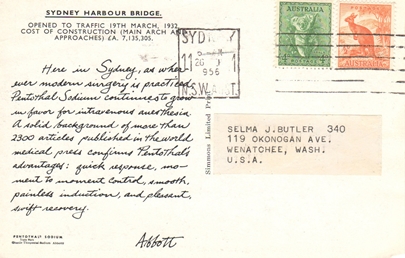 SYDNEY HARBOUR BRIDGE.
OPENED TO TRAFFIC 19TH MARCH, 1932
COST OF CONSTRUCTION (MAIN ARCH AND
APPROACHES) £A. 7,135,305.
Here in Sydney, as where-
ever modern surgery is practiced
Pentothal Sodium continues to grow
in favor for intravenous anesthesia
A solid background of more than
2300 articles published in the world
medical press confirms Pentothal's
advantages: quick response, mo-
ment to moment control, smooth,
painless induction, and pleasant,
swift recovery.
Abbott
PENTOTHAL SODIUM
SYDNEY
1956
N.S.W. AUST.
AUSTRALIA
AUSTRALIA
Simmons Limited
SELMA J.BUTLER 340
119 OKONOGAN AVE.
WENATCHEE, WASH.
U.S.A.